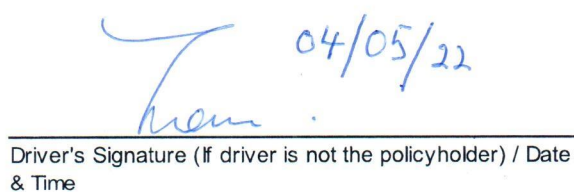 04/05/22
Driver's Signature (If driver is not the policyholder) / Date
& Time